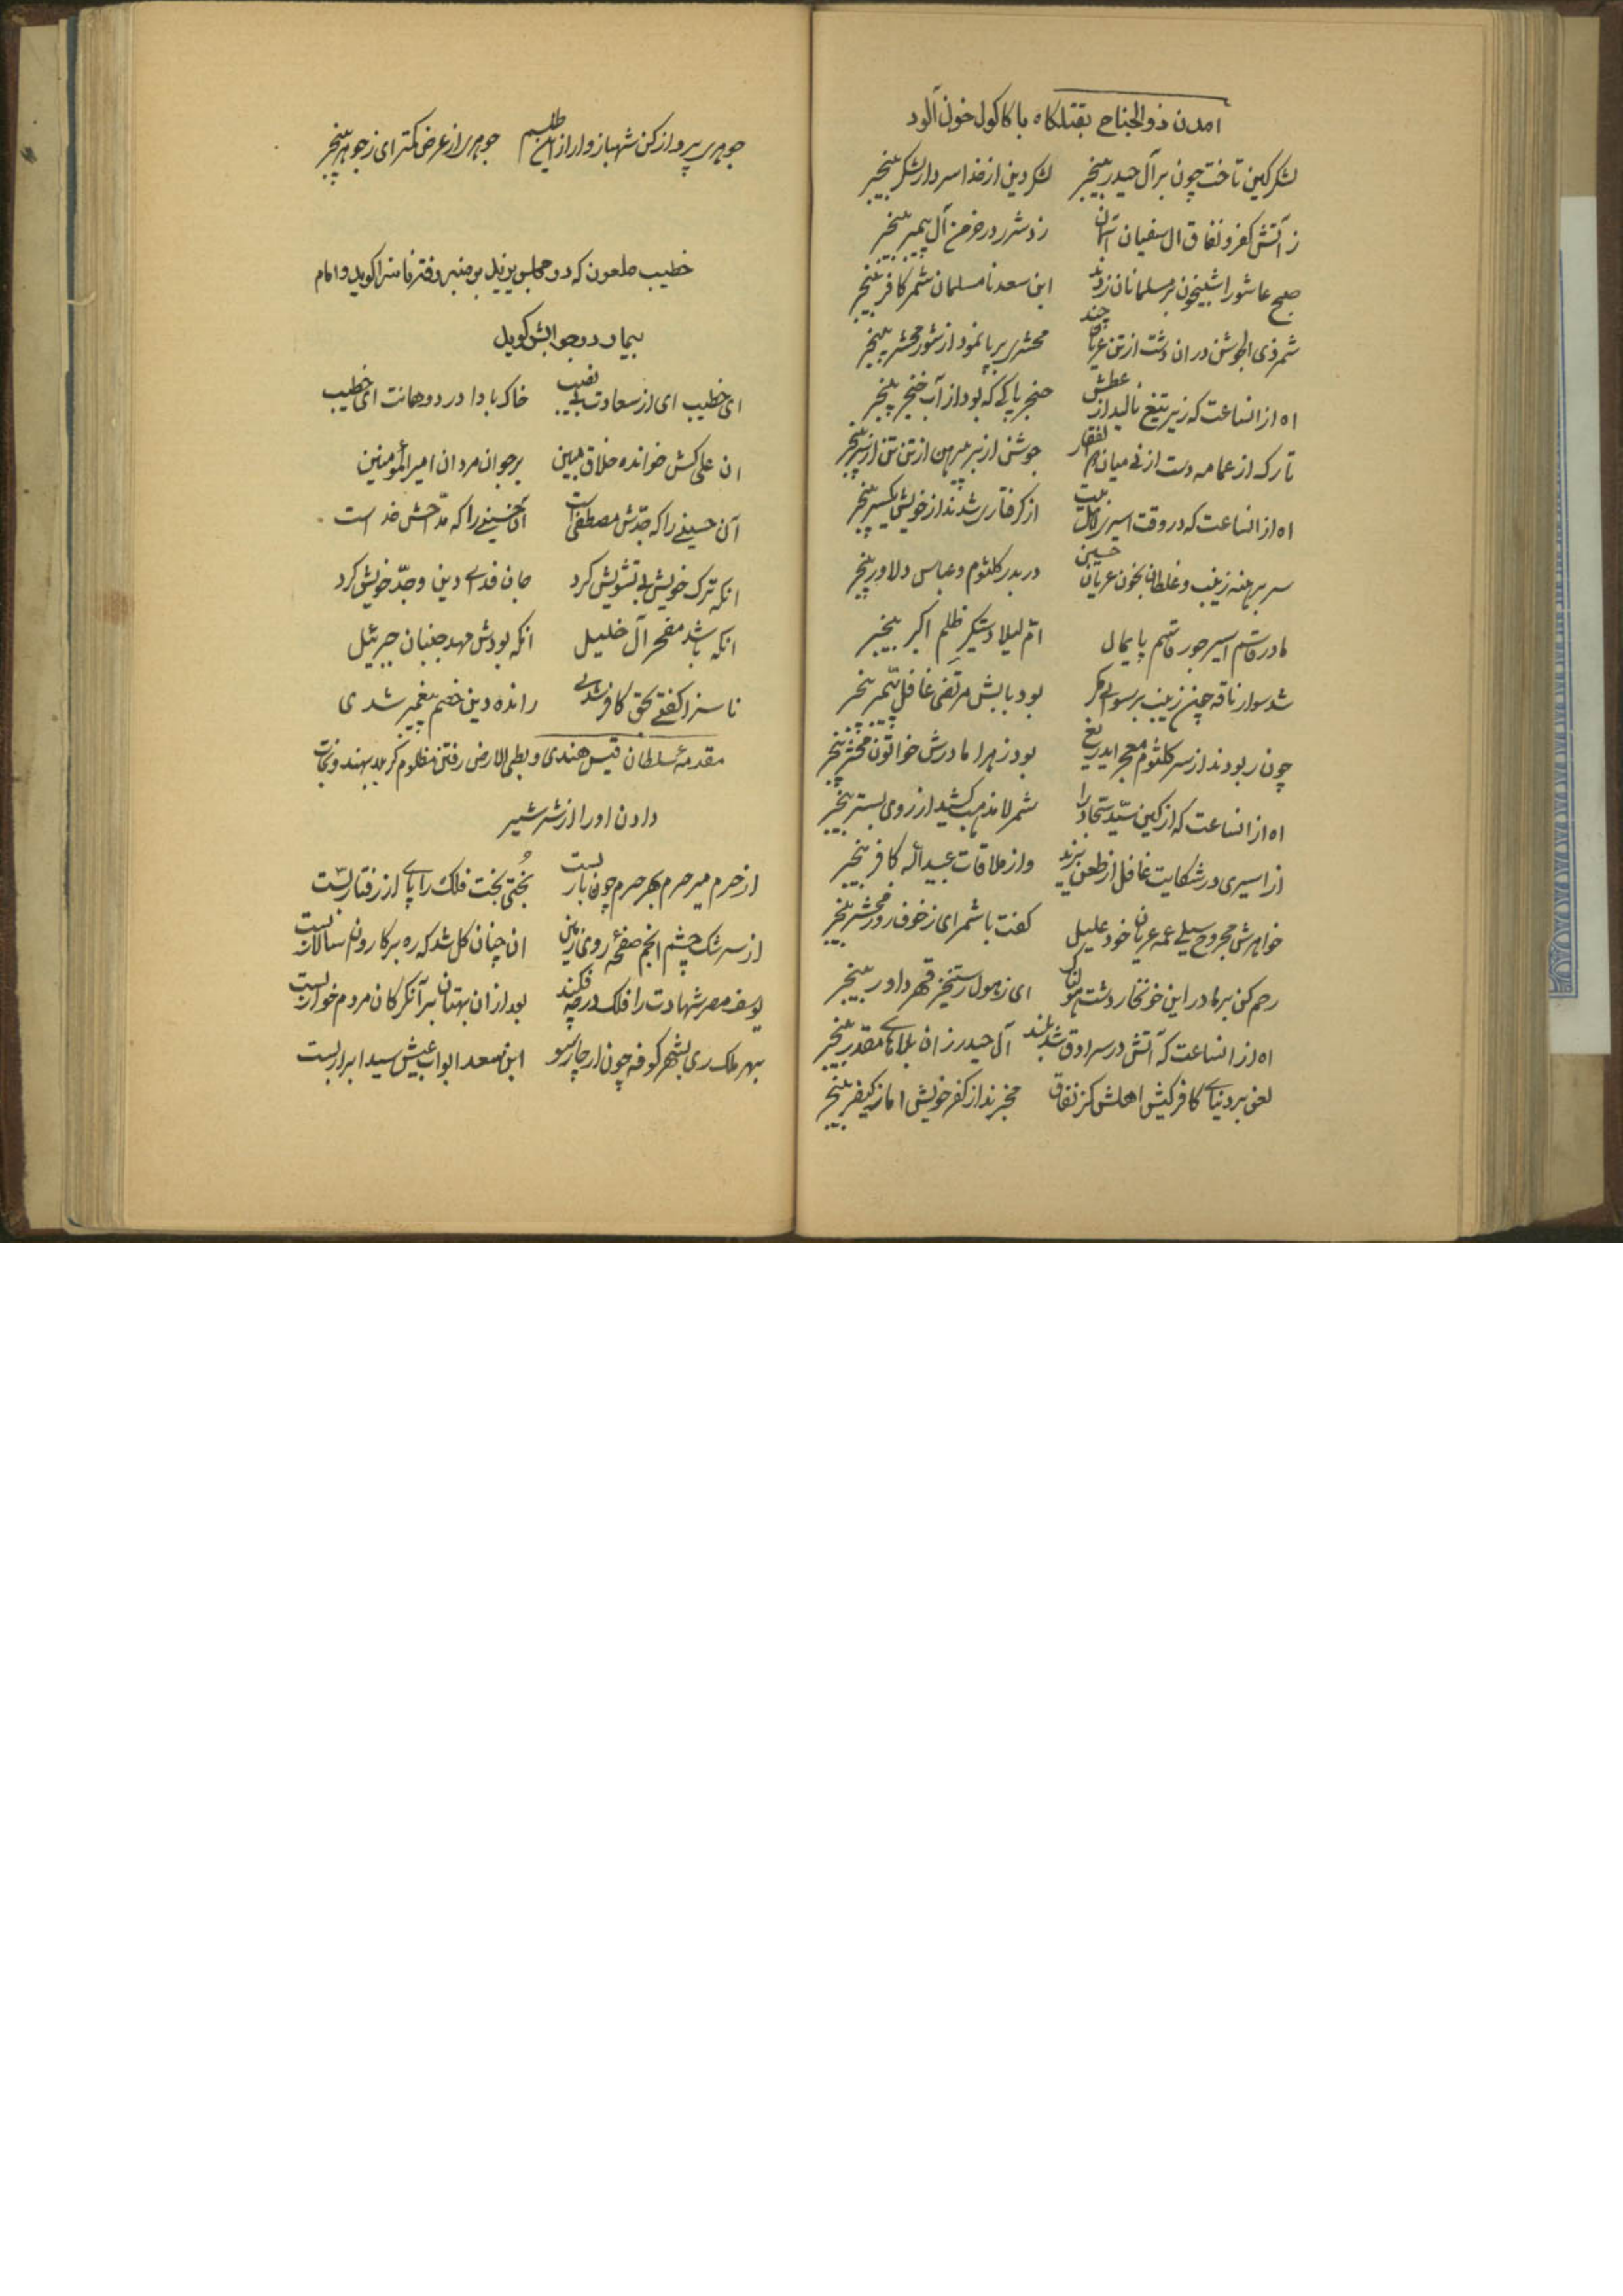 امدن ذوالجناح بقتلگاه با کاکول خون آلود
لشکر کین تاخت چون بر آل حیدر بیخبر لشکر دین از خدا سردار لشکر بیخبر
ز آتش کفر و نفاق ال سفیان آسمان زد شرر در خرمن آل پیمبر بیخبر
صبح عاشورا شبیخون بر مسلمانان زدند ابن سعد نامسلمان شمر کافر بیخبر
شمر ذی الجوشن در ان دشت از تن عریان چند محشری برپا نمود از شور محشر بیخبر
اه از انساعت که زیر تیغ نالید از عطش حنجر پاکی که بود از آب خنجر بیخبر
تارک از عمامه دست از میان جوشن از بر پیرهن از تن تن از سر بیخبر
اه از انساعت که در وقت اسیری از گرفتاری شدند از خویش یکسر بیخبر
سر برهنه زینب و غلطان بخون عریان حسین دربدر کلثوم و عباس دلاور بیخبر
مادر قاسم اسیر جور قاسم پایمال ام لیلا دستگیر ظلم اکبر بیخبر
شد سوار ناقه چون زینب برسوائی مگر بود بابش مرتضی غافل پیمبر بیخبر
چون ربودند از سر کلثوم معجر ایدریغ بود زهرا مادرش خواتون محشر بیخبر
اه از انساعت که از کین سید سجاد را شمر لامذهب کشید از روی بستر بیخبر
از اسیری در شکایت غافل از طعن یزید واز ملاقات عبیداله کافر بیخبر
خواهرش مجروح سیلی عمه عریان خود علیل گفت با شمر ای ز خوف روز محشر بیخبر
رحم کن بر ما در این خونخار دشت هولناک ای ز هول رستخیز قهر داور بیخبر
اه از انساعت که آتش در سرادق شد بلند آل حیدر زان بلاهای مقدر بیخبر
لعن بر دنیای کافر کیش اهلش کز نفاق مخبرند از کفر خویش اما ز کیفر بیخبر
جوهری پرواز کن شهباز وار از این طلسم جوهری از عرض کمتر ای ز جوهر بیخبر
خطیب ملعون که در مجلس یزید بر منبر رفته ناسزا گوید و امام
بیمار در جوابش گوید
ای خطیب ای از سعادت بی نصیب خاک بادا در دهانت ای خطیب
ان علی کش خوانده خلاق مبین بر جوان مردان امیرالمؤمنین
آن حسینی را که جدش مصطفی است آن حسینی را که مداحش خداست
انکه ترک خویش بی تشویش کرد جان فدای دین وجد خویش کرد
انکه باشد مفخر آل خلیل انکه بودش مهد جنبان جبرئیل
ناسزا گفتی بحق کافر شدی رانده دین خصم پیغمبر شدی
مقدمه سلطان قیس هندی و بطی الارض رفتن مظلوم کربلا بهند و نجات
دادن او را از شر شیر
از حرم میر حرم بهر حرم چون بار بست بختی بخت فلک را پای از رفتار بست
از سرشک چشم انجم صفحه روی زمین ان چنان گل شد که ره بر کاروان سالار بست
یوسف مصر شهادت را فلک در چه فکند بعد از ان بهتان بر آن گرگان مردم خوار بست
بهر ملک ری بشهر کوفه چون از چارسو ابن سعد ابواب عیش سید ابرار بست